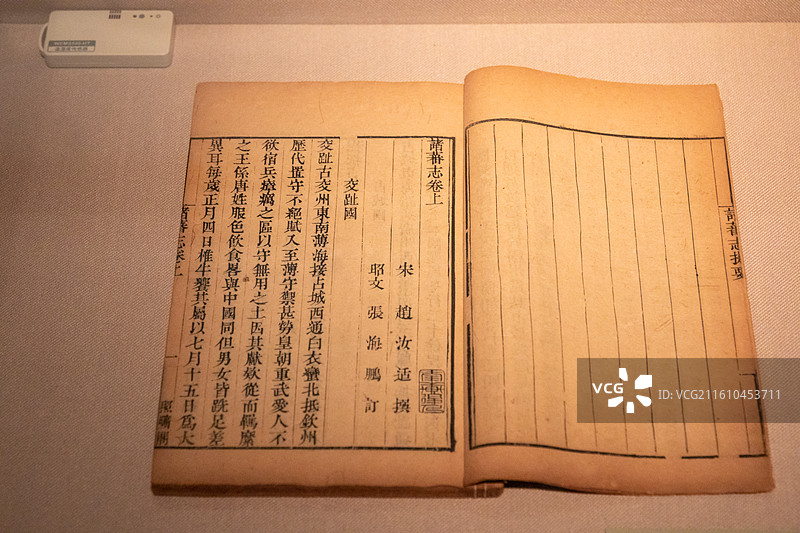 諸蕃志提要
諸蕃志卷上
宋 趙汝适 撰
昭文 張海鵬 訂
交趾國
交趾古交州東南薄海接占城西通白衣蠻北抵欽州
歷代置守不絕賦入至薄守禦甚勞皇朝重武愛人不
欲宿兵瘴癘之區以守無用之土因其獻欵從而羈縻
之王係唐姓服色飲食畧與中國同但男女皆跣足差
異耳每歲正月四日椎牛饗其屬以七月十五日爲大
諸蕃志卷上
一
照曠閣
VCG
ID: VCG211610453711